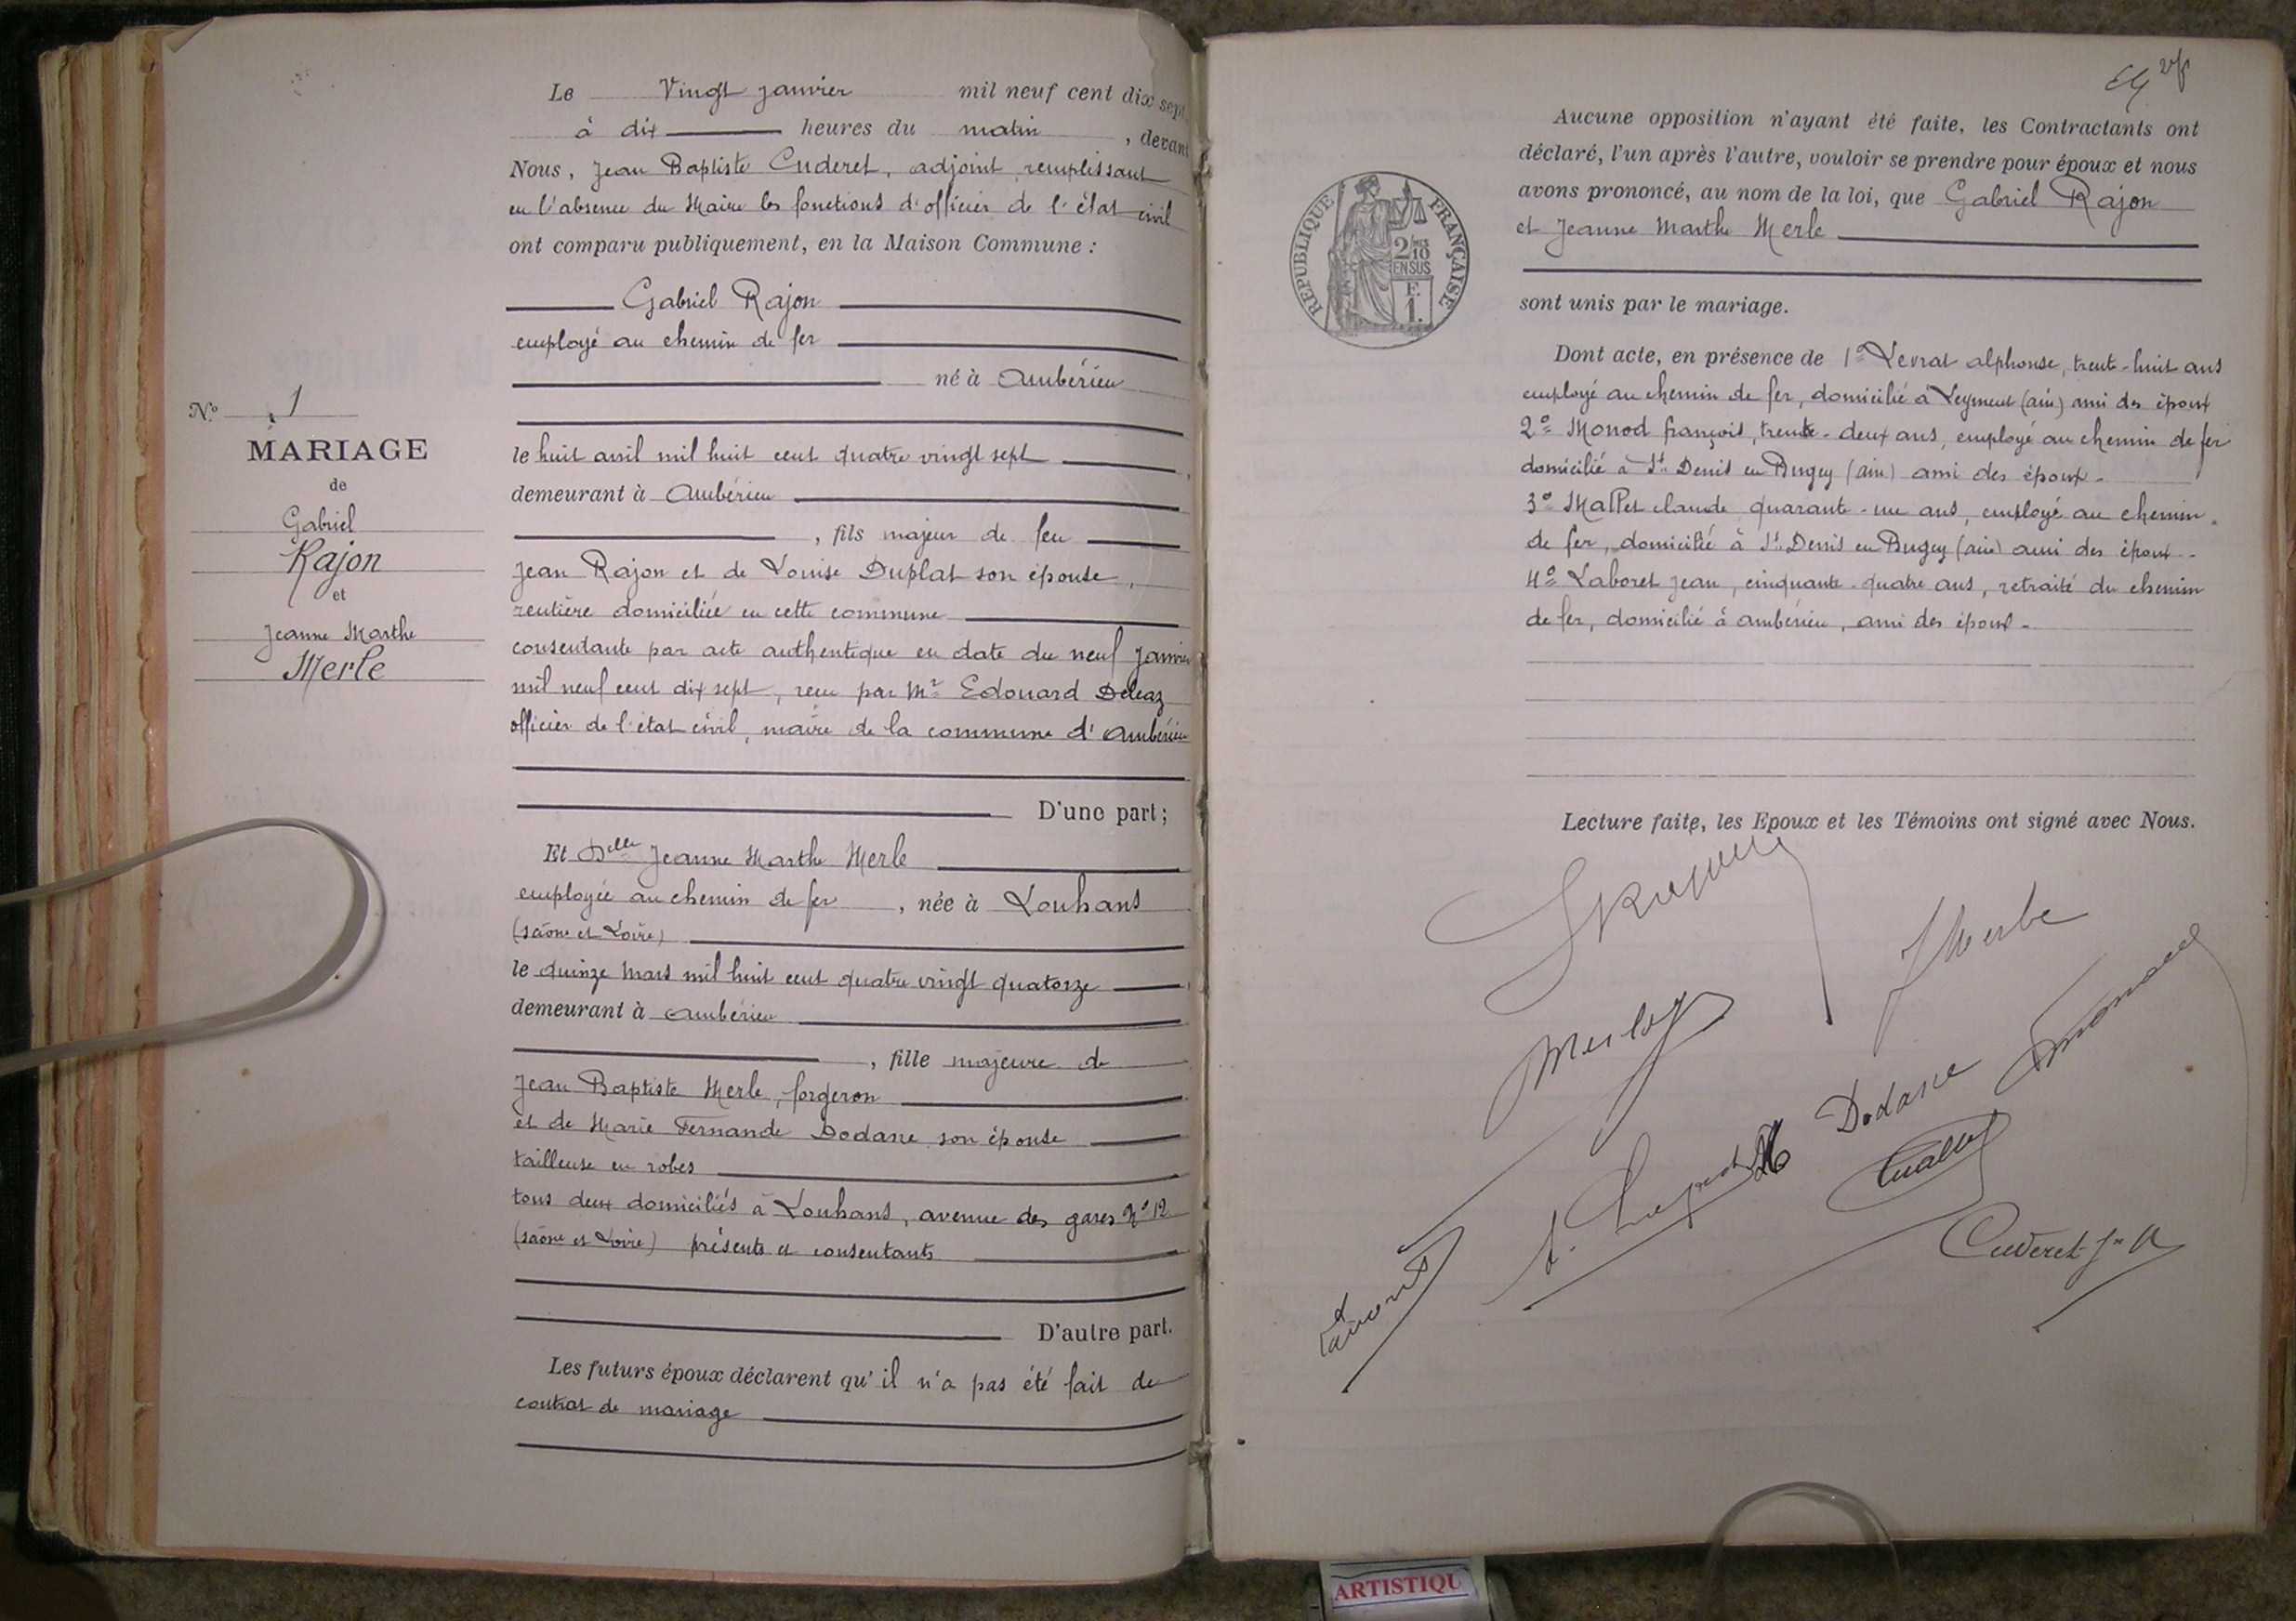 Le Vingt janvier mil neuf cent dix sept
à dix heures du matin , devant
Nous, Jean Baptiste Cuderet, adjoint, remplissant
en l'absence du Maire les fonctions d'officier de l'état civil
ont comparu publiquement, en la Maison Commune :
Gabriel Rajon
employé au chemin de fer
né à Ambérieu
le huit avril mil huit cent quatre vingt sept
demeurant à Ambérieu
, fils majeur de feu
Jean Rajon et de Louise Duplat son épouse,
rentière domiciliée en cette commune
consentante par acte authentique en date du neuf janvier
mil neuf cent dix sept, recu par Mr Edouard
officier de l'état civil, maire de la commune d'Ambérieu
D'une part ;
Et Delle Jeanne Marthe Merle
employée au chemin de fer , née à Louhans
(saône et Loire)
le quinze Mars mil huit cent quatre vingt quatorze
demeurant à Ambérieu
, fille majeure de
Jean Baptiste Merle, forgeron
et de Marie Fernande Dodane son épouse
tailleuse en robes
tous deux domiciliés à Louhans, avenue des gares No 12
(saône et Loire) présents et consentants
D'autre part.
Les futurs époux déclarent qu'il n'a pas été fait de
contrat de mariage
No 1
MARIAGE
de
Gabriel
Rajon
et
Jeanne Marthe
Merle
Aucune opposition n'ayant été faite, les Contractants ont
déclaré, l'un après l'autre, vouloir se prendre pour époux et nous
avons prononcé, au nom de la loi, que Gabriel Rajon
et Jeanne Marthe Merle
sont unis par le mariage.
REPUBLIQUE FRANÇAISE
2/10
EN SUS
F.
1.
Dont acte, en présence de 1o Levrat alphonse, trente-huit ans
employé au chemin de fer, domicilié à Leyment (ain) ami des époux
2o Monod françois, trente-deux ans, employé au chemin de fer
domicilié à St Denis en Bugey (ain) ami des époux-
3o Mallet claude quarante-un ans, employé au chemin
de fer, domicilié à St Denis en Bugey (ain) ami des époux-
4o Laboret Jean, cinquante-quatre ans, retraité du chemin
de fer, domicilié à ambérieu, ami des époux-
Lecture faite, les Epoux et les Témoins ont signé avec Nous.
JMerle
Dodane
Cuderet
ARTISTIQU